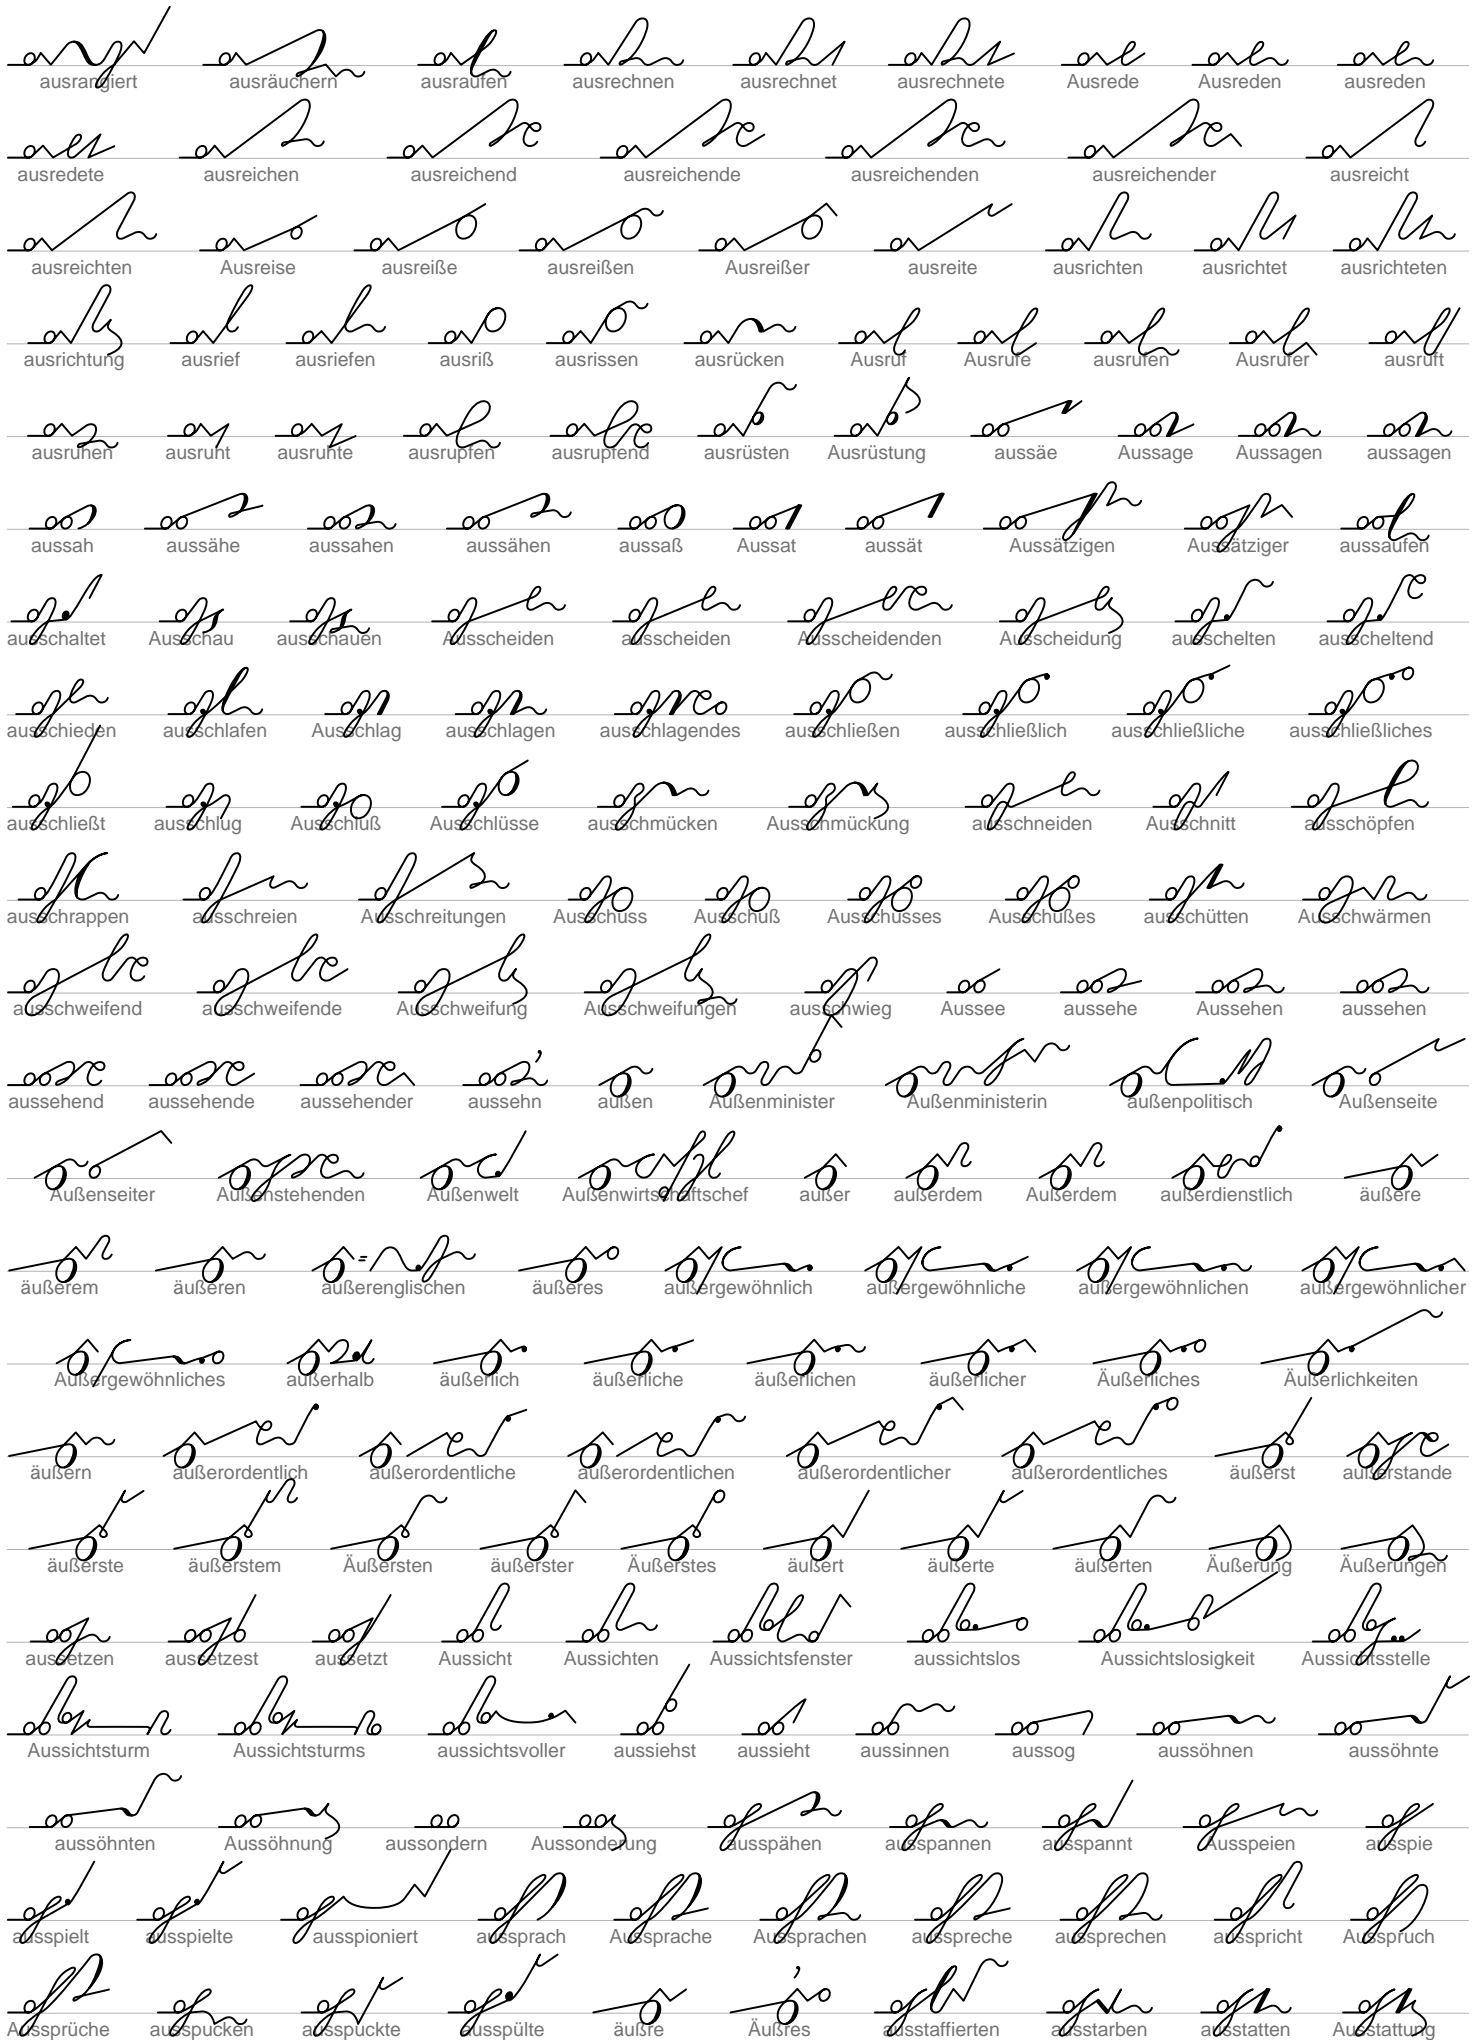 ausrangiert ausräuchern ausraufen ausrechnen ausrechnet ausrechnete Ausrede Ausreden ausreden
ausredete ausreichen ausreichend ausreichende ausreichenden ausreichender ausreicht
ausreichten Ausreise ausreiße ausreißen Ausreißer ausreite ausrichten ausrichtet ausrichteten
ausrichtung ausrief ausriefen ausriß ausrissen ausrücken Ausruf Ausrufe ausrufen Ausrufer ausruft
ausruhen ausruht ausruhte ausrupfen ausrupfend ausrüsten Ausrüstung aussäe Aussage Aussagen aussagen
aussah aussähe aussahen aussähen aussaß Aussat aussät Aussätzigen Aussätziger aussaufen
ausschaltet Ausschau ausschauen Ausscheiden ausscheiden Ausscheidenden Ausscheidung ausschelten ausscheltend
ausschieden ausschlafen Ausschlag ausschlagen ausschlagendes ausschließen ausschließlich ausschließliche ausschließliches
ausschließt ausschlug Ausschluß Ausschlüsse ausschmücken Ausschmückung ausschneiden Ausschnitt ausschöpfen
ausschrappen ausschreien Ausschreitungen Ausschuss Ausschuß Ausschusses Ausschußes ausschütten Ausschwärmen
ausschweifend ausschweifende Ausschweifung Ausschweifungen ausschwieg Aussee aussehe Aussehen aussehen
aussehend aussehende aussehender aussehn außen Außenminister Außenministerin außenpolitisch Außenseite
Außenseiter Außenstehenden Außenwelt Außenwirtschaftschef außer außerdem Außerdem außerdienstlich äußere
äußerem äußeren außerenglischen äußeres außergewöhnlich außergewöhnliche außergewöhnlichen außergewöhnlicher
Außergewöhnliches außerhalb äußerlich äußerliche äußerlichen äußerlicher Äußerliches Äußerlichkeiten
äußern außerordentlich außerordentliche außerordentlichen außerordentlicher außerordentliches äußerst außerstande
äußerste äußerstem Äußersten äußerster Äußerstes äußert äußerte äußerten Äußerung Äußerungen
aussetzen aussetzest aussetzt Aussicht Aussichten Aussichtsfenster aussichtslos Aussichtslosigkeit Aussichtsstelle
Aussichtsturm Aussichtsturms aussichtsvoller aussiehst aussieht aussinnen aussog aussöhnen aussöhnte
aussöhnten Aussöhnung aussondern Aussonderung ausspähen ausspannen ausspannt Ausspeien ausspie
ausspielt ausspielte ausspioniert aussprach Aussprache Aussprachen ausspreche aussprechen ausspricht Ausspruch
Aussprüche ausspucken ausspuckte ausspülte äußre Äußres ausstaffierten ausstarben ausstatten Ausstattung